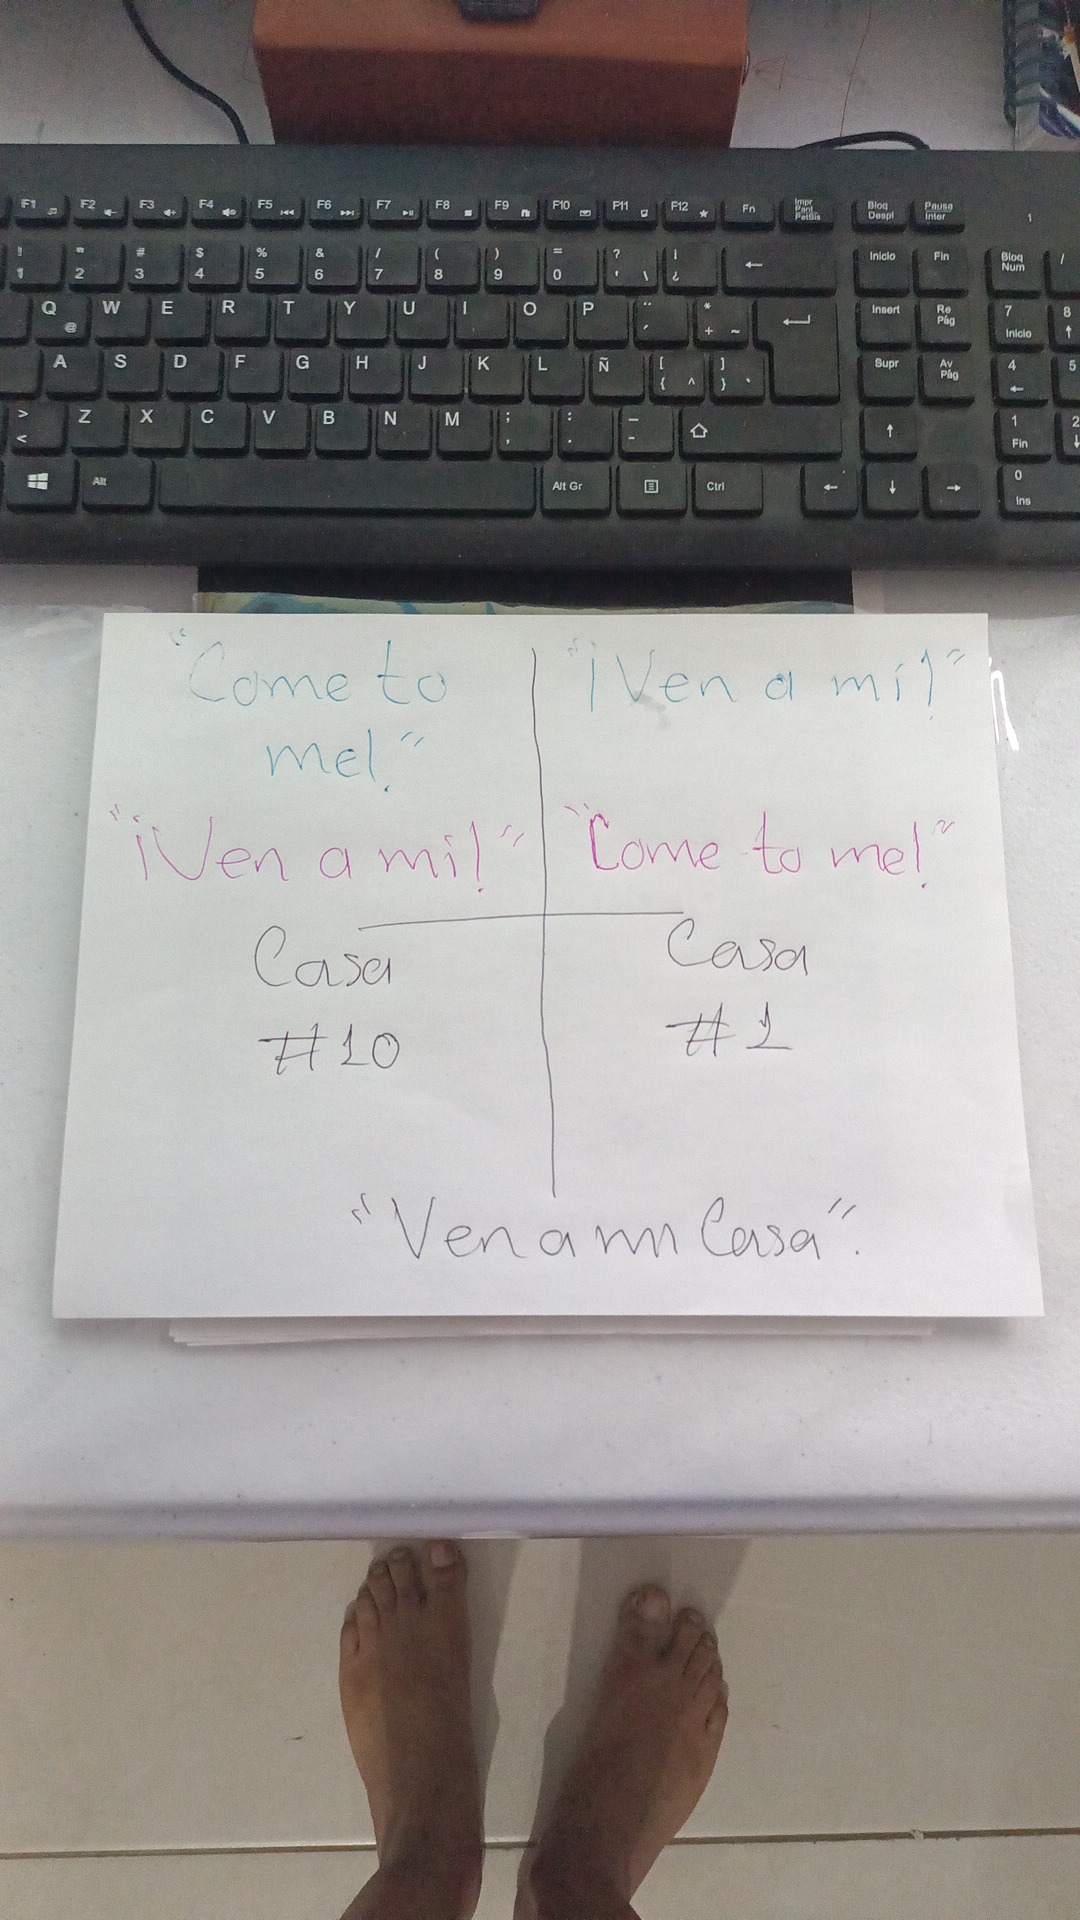 F1 F2 F3 F4 F5 F6 F7 F8 F9 F10 F11 F12 Fn Impr Pant PetSis Bloq Despl Pausa Inter
! 1 " 2 # 3 $ 4 % 5 & 6 / 7 ( 8 ) 9 = 0 ? ' \ ¡ ¿ ← Inicio Fin Bloq Num /
Q @ W E R T Y U I O P ¨ ´ * + ~ Insert Re Pág 7 Inicio 8 ↑
A S D F G H J K L Ñ [ { ^ ] } ` Supr Av Pág 4 ← 5
> < Z X C V B N M ; , : . _ - ↑ 1 Fin 2 ↓
Alt Alt Gr Ctrl ← ↓ → 0 Ins
"Come to "¡Ven a mí!"
me!"
"¡Ven a mi!" "Come to me!"
Casa Casa
#10 #1
"Ven a mi Casa".